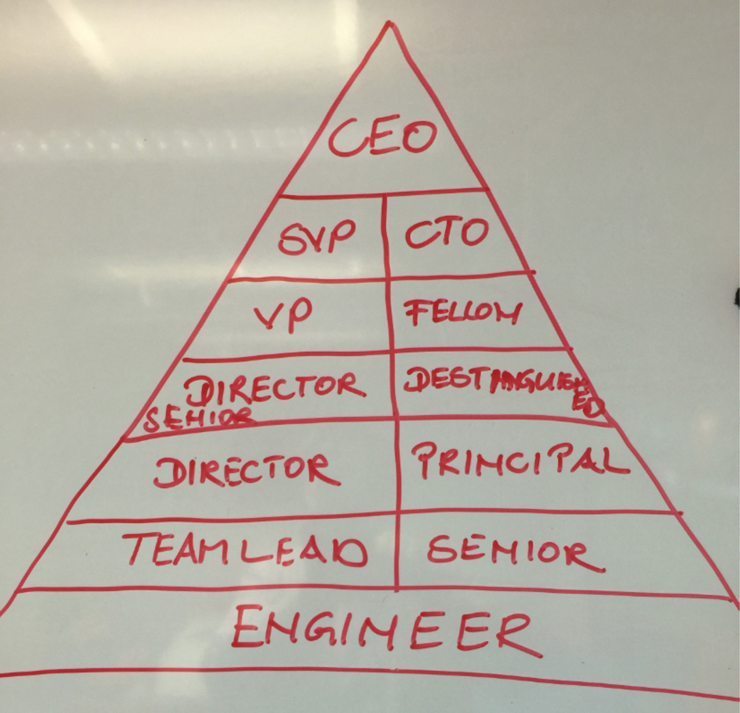 CEO
SVP CTO
VP FELLOW
DIRECTOR DESTINGUISH
SENIOR ED
DIRECTOR PRINCIPAL
TEAM LEAD SENIOR
ENGINEER